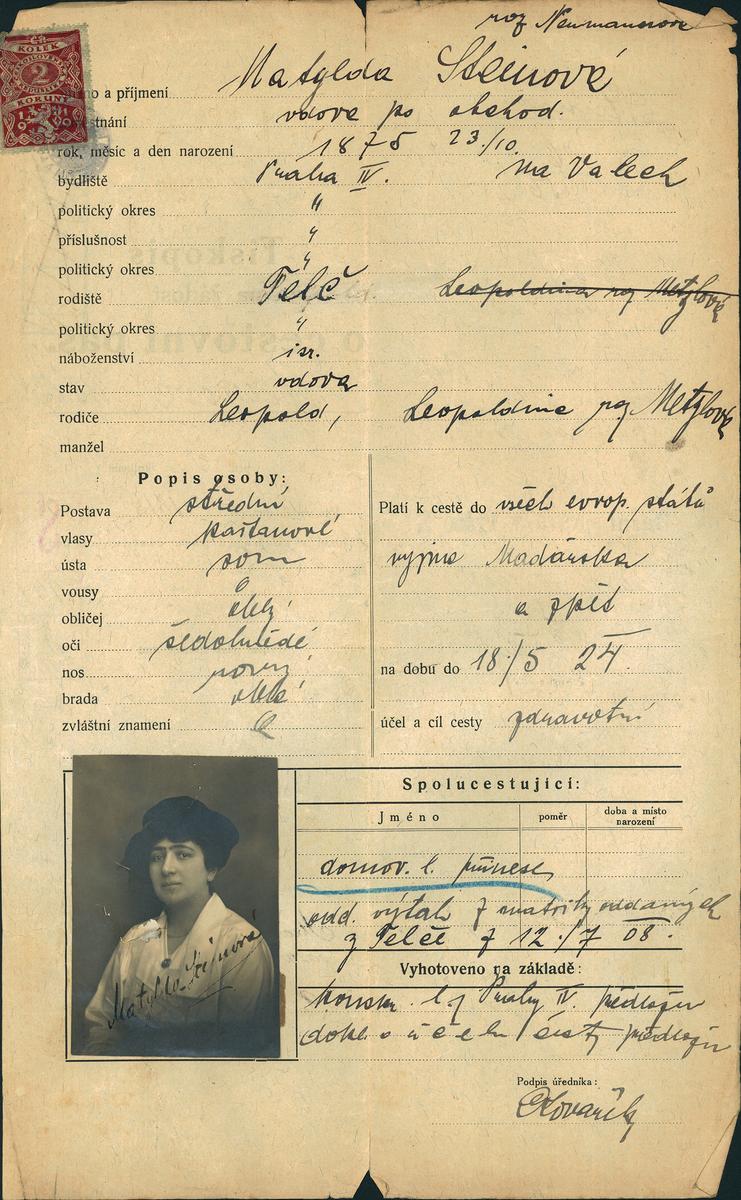 roz Neumannova
KOLEK
2
KORUNY
a příjmení Matylda Steinové
vdova po obchod.
rok, měsíc a den narození 1875 23/10
bydliště Praha IV. na Valech
politický okres "
příslušnost "
politický okres "
rodiště Telč Leopoldina roz Metzlová
politický okres "
náboženství isr.
stav vdova
rodiče Leopold, Leopoldine roz Metzlové
manžel
Popis osoby:
Postava střední
Platí k cestě do všech evrop. států
vlasy kaštanové
ústa soum
vyjma Maďarska
vousy 0
a zpět
obličej obl.
oči šedohnědé
nos rovný
na dobu do 18./5 24.
brada oblá
zvláštní znamení 0
účel a cíl cesty zdravotní
Spolucestující:
Jméno poměr doba a místo narození
domov. l. přinese
odd. výtah z matriky oddaných
z Telče z 12./7 08.
Vyhotoveno na základě:
konskr. l. z Prahy IV. předložen
dokl. o účelu cesty předložen
Matylda Steinová
Podpis úředníka:
Kovařík